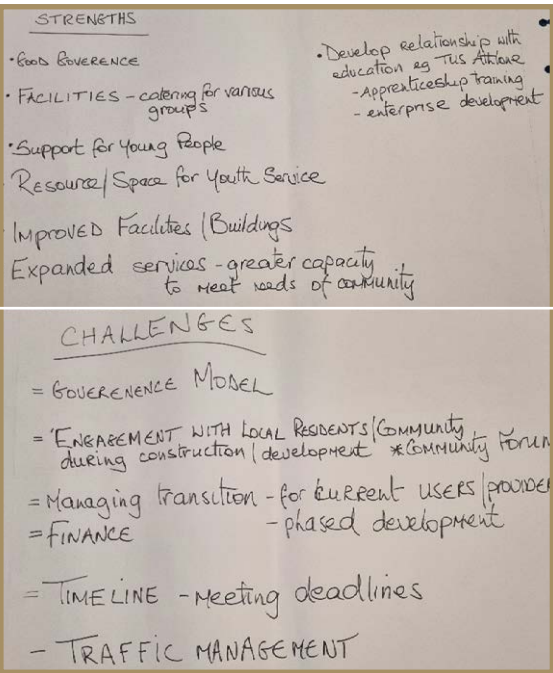 STRENGTHS
• GOOD GOVERENCE
• FACILITIES – catering for various
groups
• Support for Young People
Resource/Space for Youth Service
IMPROVED Facilities/Buildings
Expanded services - greater capacity
to meet needs of community
• Develop Relationship with
education eg TUS Athlone
- Apprenticeship training
- enterprise development
CHALLENGES
= GOVERENENCE MODEL
= ENGAGEMENT WITH LOCAL RESIDENTS/Community
during construction/development *Community Forum
= Managing transition - for current users/provider
- phased development
= FINANCE
= TIMELINE - Meeting deadlines
- TRAFFIC MANAGEMENT